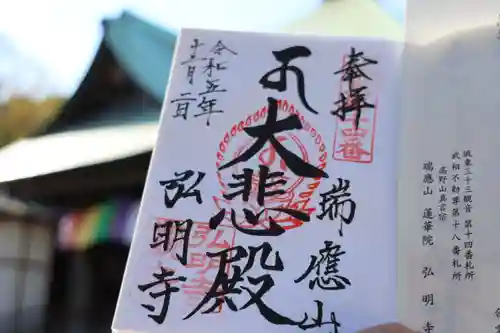 坂東三十三観音 第十四番札所
武相不動尊第十八番札所
高野山真言宗
瑞應山 蓮華院 弘明寺
奉拝
瑞應山
大悲殿
弘明寺
令和五年